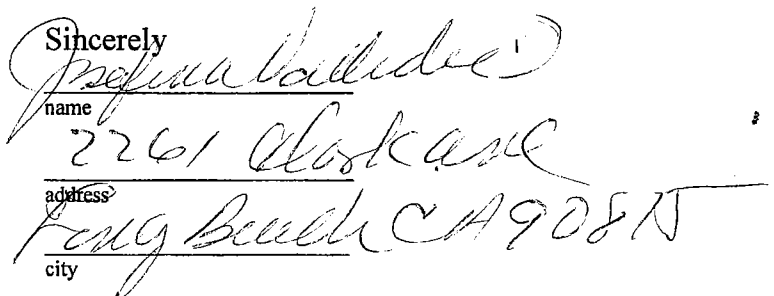 Sincerely
Josefina
name
2261 Clark ave
address
Long Beach CA 90815
city